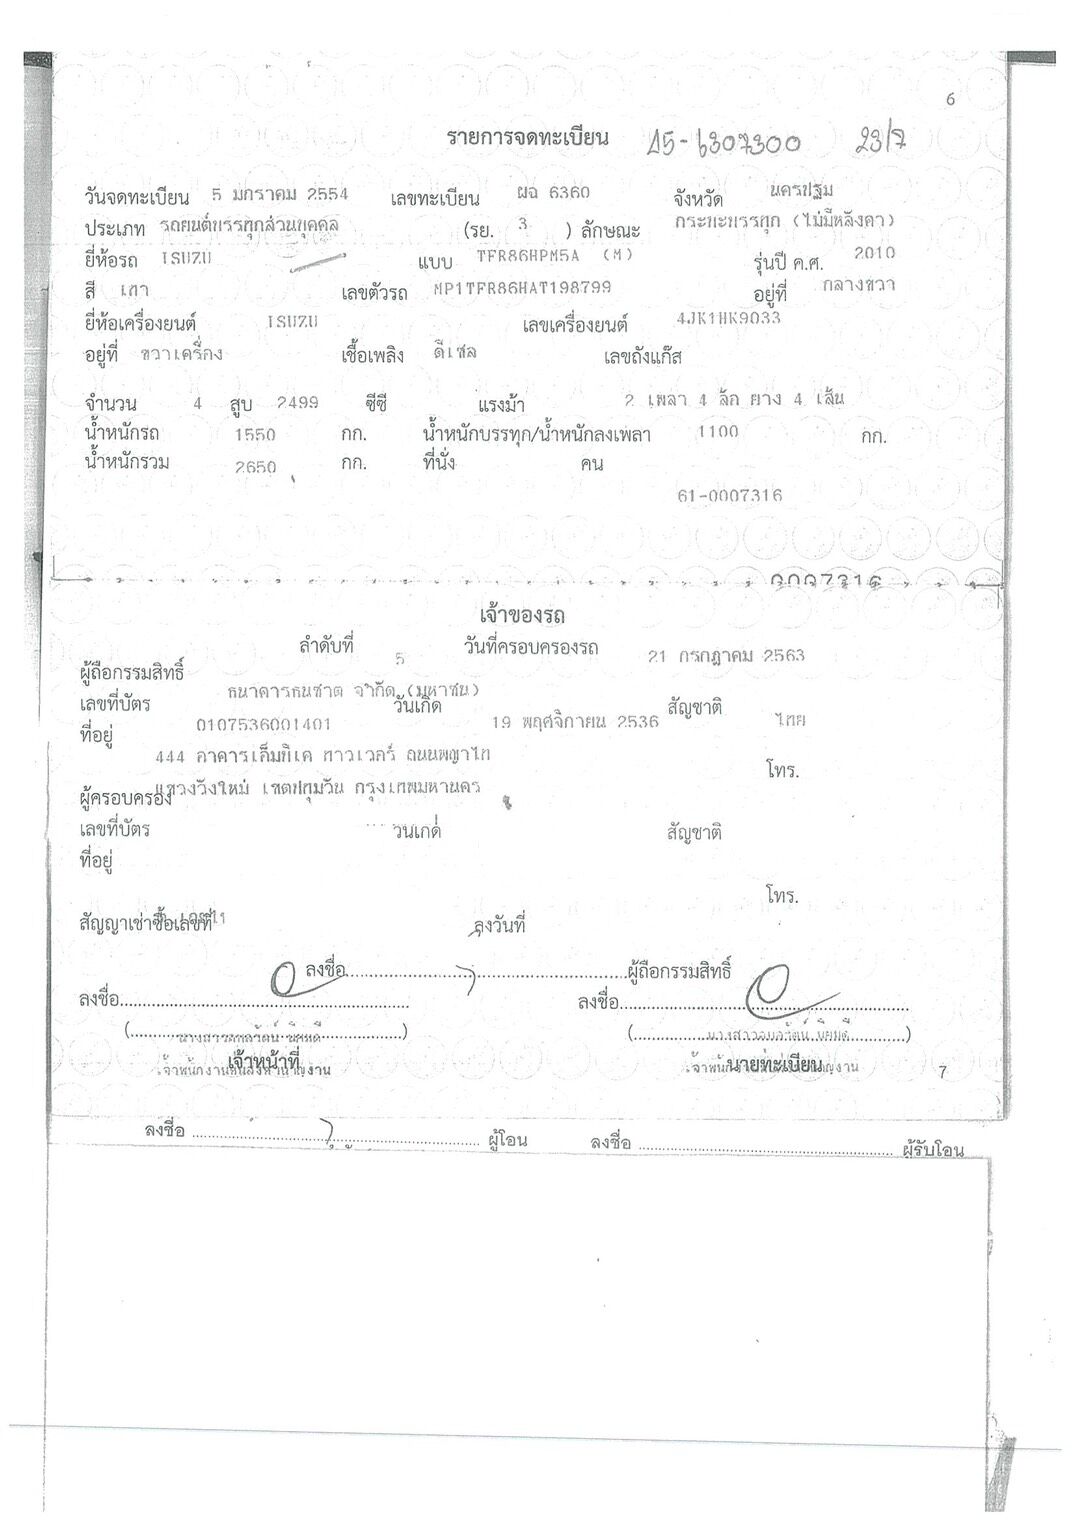 6
รายการจดทะเบียน 15-6307300 23/7
วันจดทะเบียน 5 มกราคม 2554 เลขทะเบียน ผฉ 6360 จังหวัด นครปฐม
ประเภท รถยนต์บรรทุกส่วนบุคคล (รย. 3 ) ลักษณะ กระบะบรรทุก (ไม่มีหลังคา)
ยี่ห้อรถ ISUZU แบบ TFR86HPM5A (M) รุ่นปี ค.ศ. 2010
สี เทา เลขตัวรถ MP1TFR86HAT198799 อยู่ที่ กลางขวา
ยี่ห้อเครื่องยนต์ ISUZU เลขเครื่องยนต์ 4JK1HK9033
อยู่ที่ ขวาเครื่อง เชื้อเพลิง ดีเซล เลขถังแก๊ส
จำนวน 4 สูบ 2499 ซีซี แรงม้า 2 เพลา 4 ล้อ ยาง 4 เส้น
น้ำหนักรถ 1550 กก. น้ำหนักบรรทุก/น้ำหนักลงเพลา 1100 กก.
น้ำหนักรวม 2650 กก. ที่นั่ง คน
61-0007316
0007316
เจ้าของรถ
ลำดับที่ 5 วันที่ครอบครองรถ 21 กรกฎาคม 2563
ผู้ถือกรรมสิทธิ์ ธนาคารธนชาต จำกัด (มหาชน)
เลขที่บัตร 0107536001401 วันเกิด 19 พฤศจิกายน 2536 สัญชาติ ไทย
ที่อยู่ 444 อาคารเอ็มบีเค ทาวเวอร์ ถนนพญาไท
แขวงวังใหม่ เขตปทุมวัน กรุงเทพมหานคร โทร.
ผู้ครอบครอง
เลขที่บัตร วันเกิด สัญชาติ
ที่อยู่
โทร.
สัญญาเช่าซื้อเลขที่ ลงวันที่
ลงชื่อ ผู้ถือกรรมสิทธิ์
ลงชื่อ ลงชื่อ
เจ้าหน้าที่ นายทะเบียน
7
ลงชื่อ ผู้โอน ลงชื่อ ผู้รับโอน